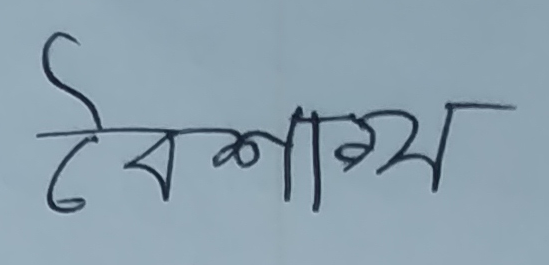 বৈশাখ